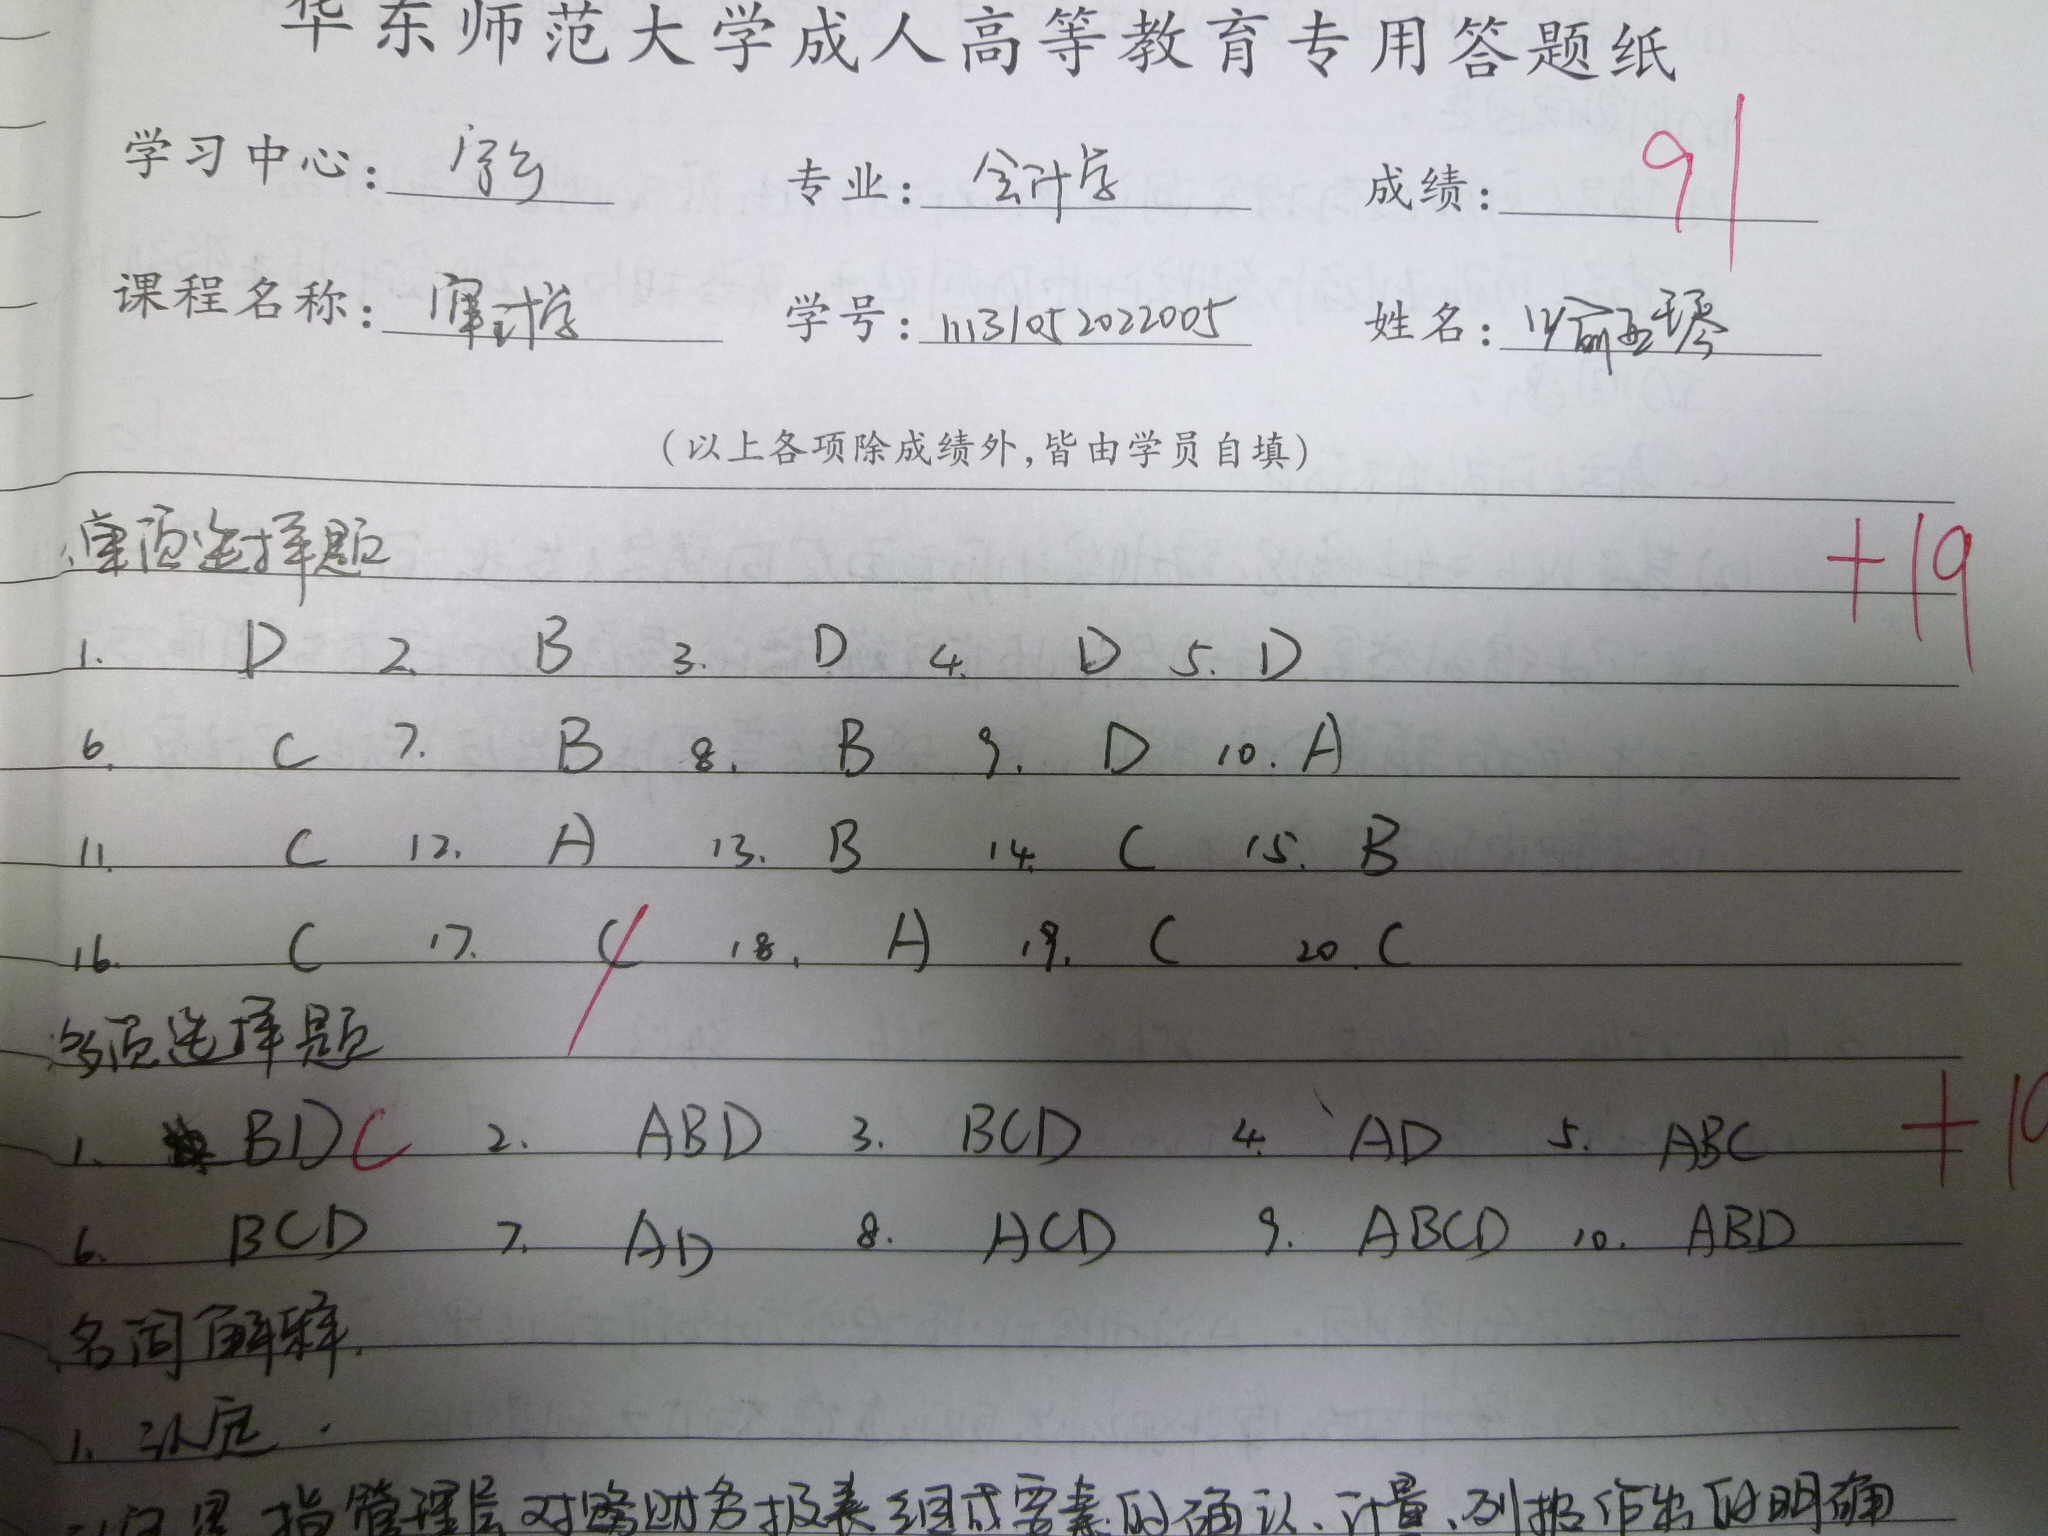 华东师范大学成人高等教育专用答题纸
学习中心: 专业: 会计学 成绩: 91
课程名称: 审计学 学号: 11131052022005 姓名: 俞亚琴
(以上各项除成绩外,皆由学员自填)
单项选择题 +19
1. D 2. B 3. D 4. D 5. D
6. C 7. B 8. B 9. D 10. A
11. C 12. A 13. B 14. C 15. B
16. C 17. C 18. A 19. C 20. C
多项选择题
1. BDC 2. ABD 3. BCD 4. AD 5. ABC +19
6. BCD 7. AD 8. ACD 9. ABCD 10. ABD
名词解释.
1. 认定.
是指管理层对财务报表组成要素的确认、计量、列报作出的明确